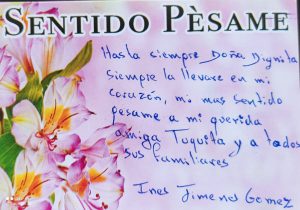 SENTIDO PÈSAME
Hasta siempre Doña Dignita
siempre la llevare en mi
corazón, mi mas sentido
pesame a mi querida
amiga Tuquita y a todos
sus familiares
Ines Jimenes Gomez